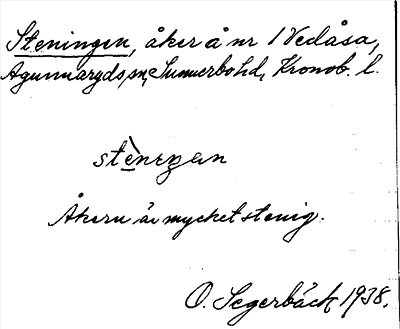 Steningen, åker å nr 1 Vedåsa,
Agunnaryds sn, Sunnerbo hd, Kronob. l.
stè̱nıŋən
Åkern är mycket stenig.
O. Segerbäck 1938.